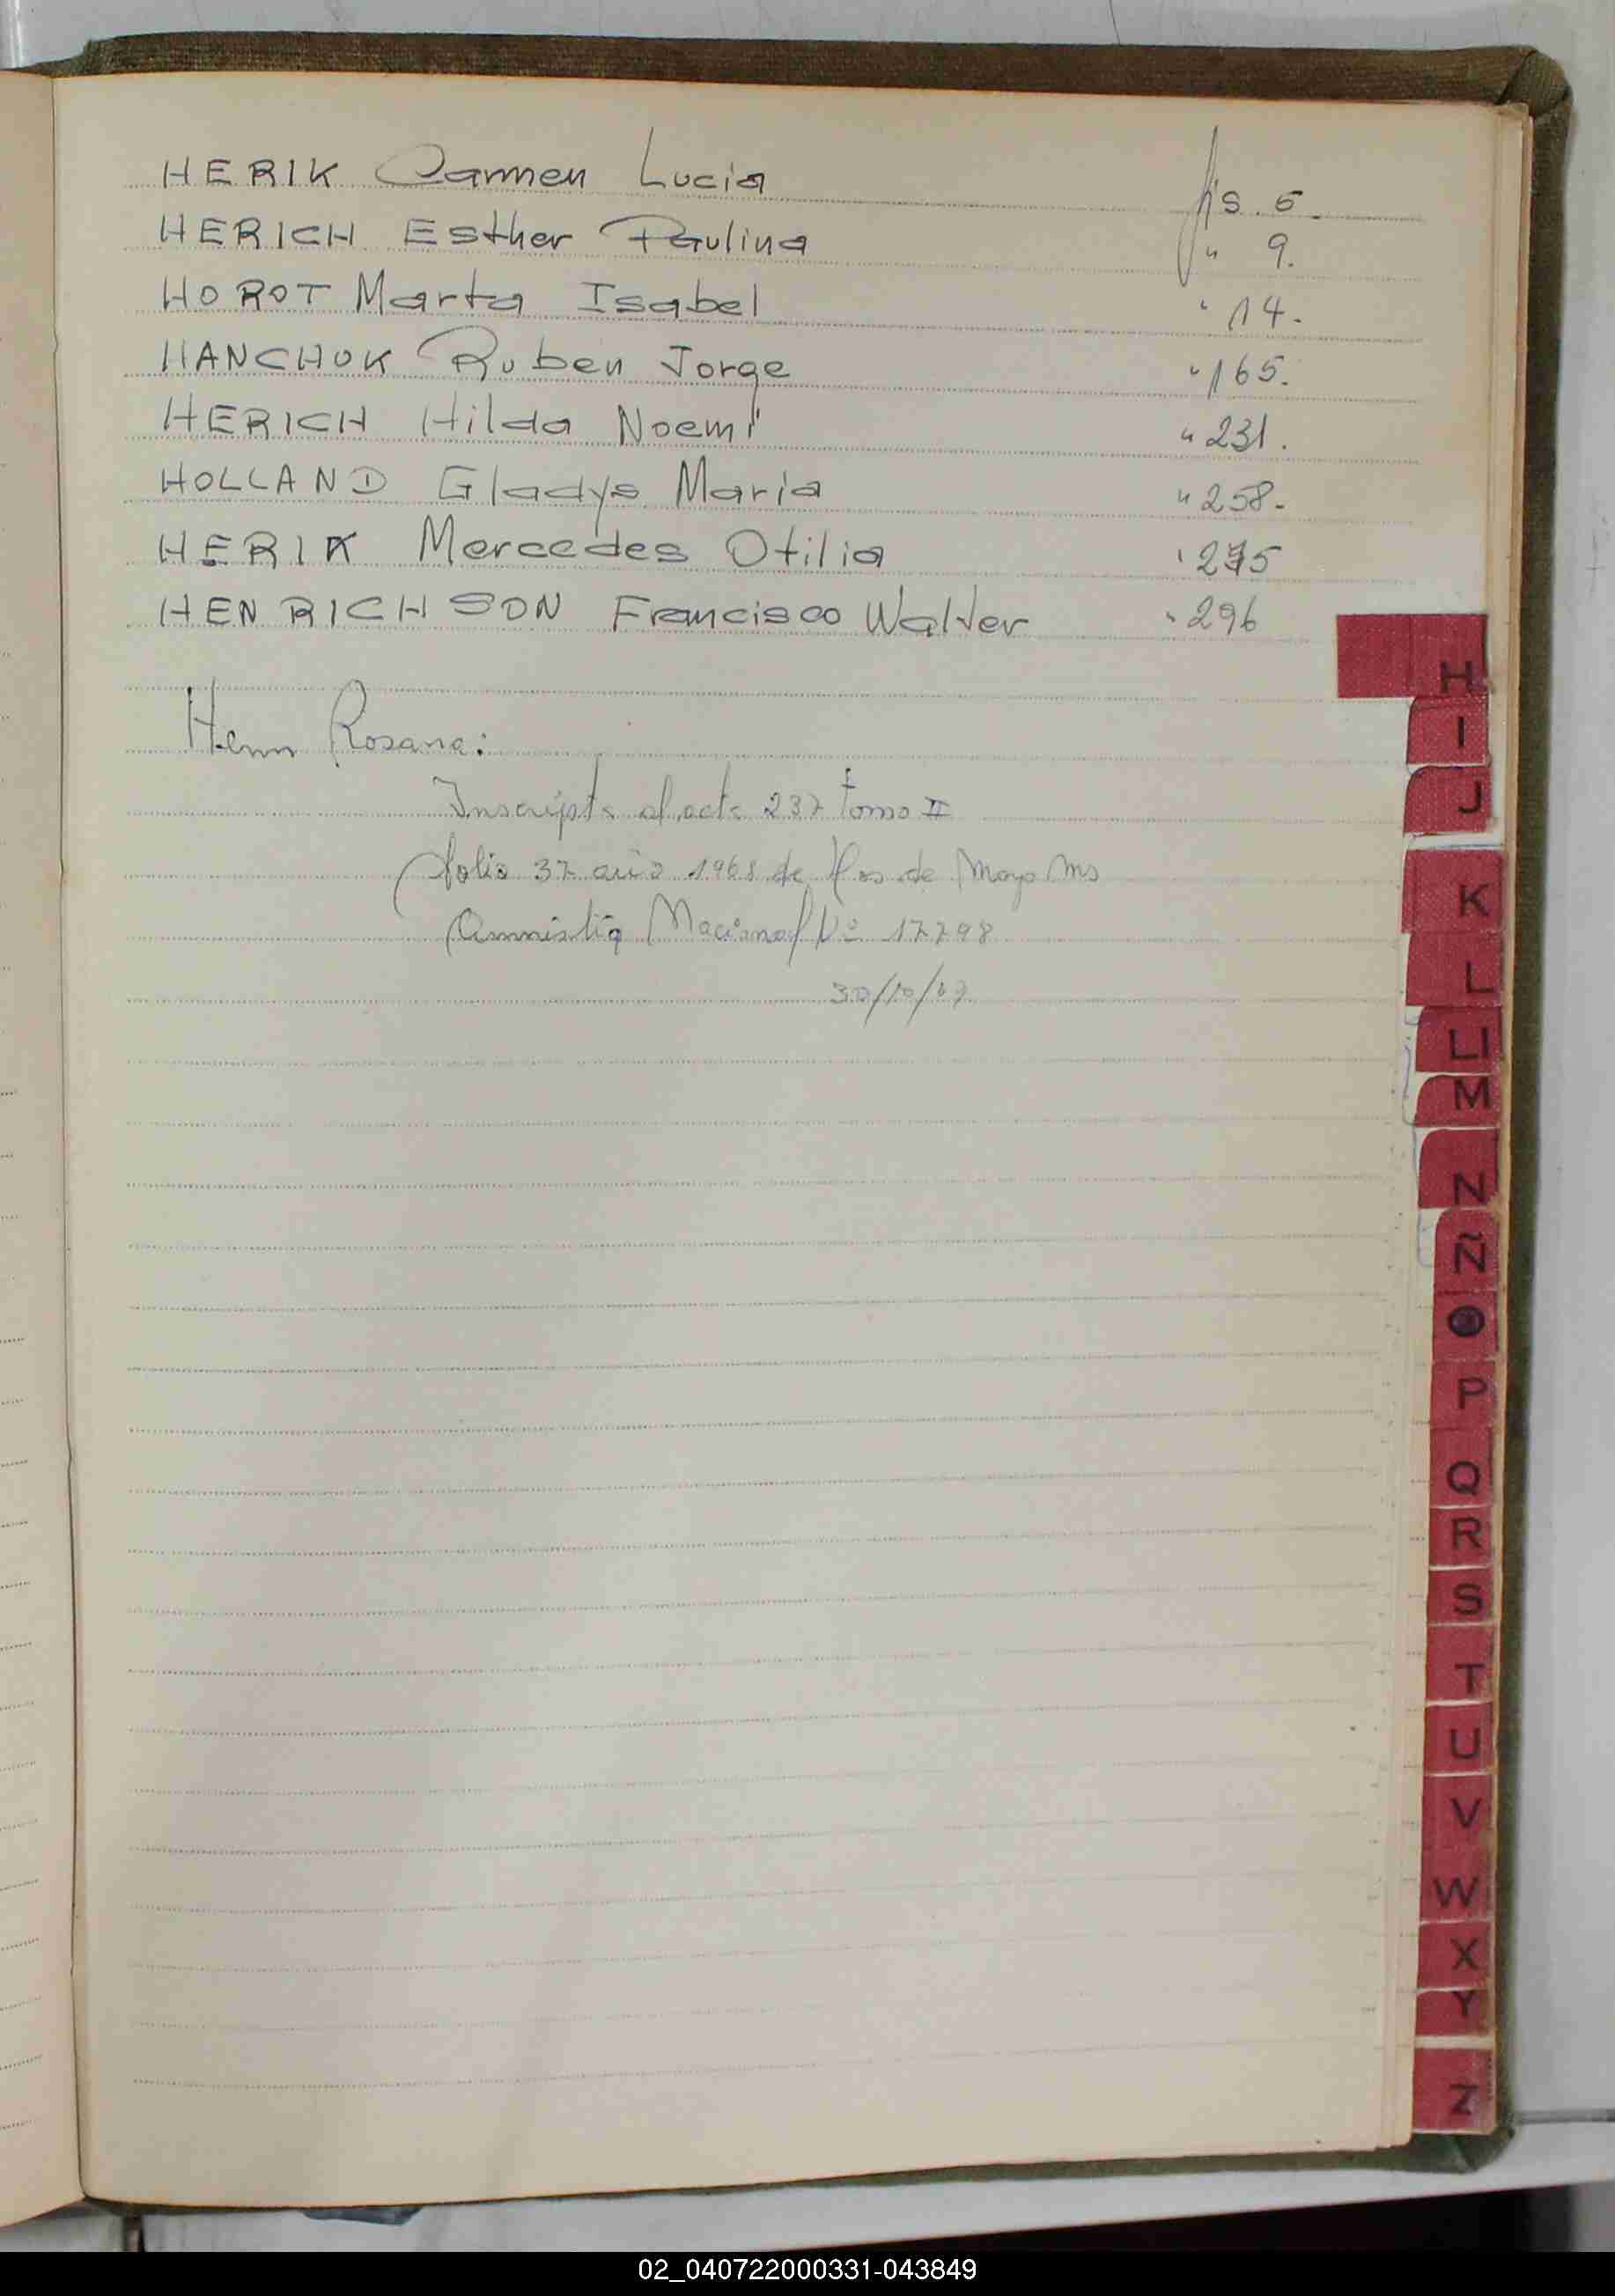 HERIK Carmen Lucia fjs. 5.
HERICH Esther Paulina " 9.
HOROT Marta Isabel " 14.
HANCHUK Ruben Jorge " 165.
HERICH Hilda Noemí " 231.
HOLLAND Gladys Maria " 258.
HERIK Mercedes Otilia " 275
HENRICHSON Francisco Walter " 296
Henn Rosana:
Inscripta al acta 237 tomo II
folio 37 año 1968 de de Mayo Ms
Amnistia Nacional Nº 17798
30/10/
H
I
J
K
L
Ll
M
N
Ñ
O
P
Q
R
S
T
U
V
W
X
Y
Z
02_040722000331-043849